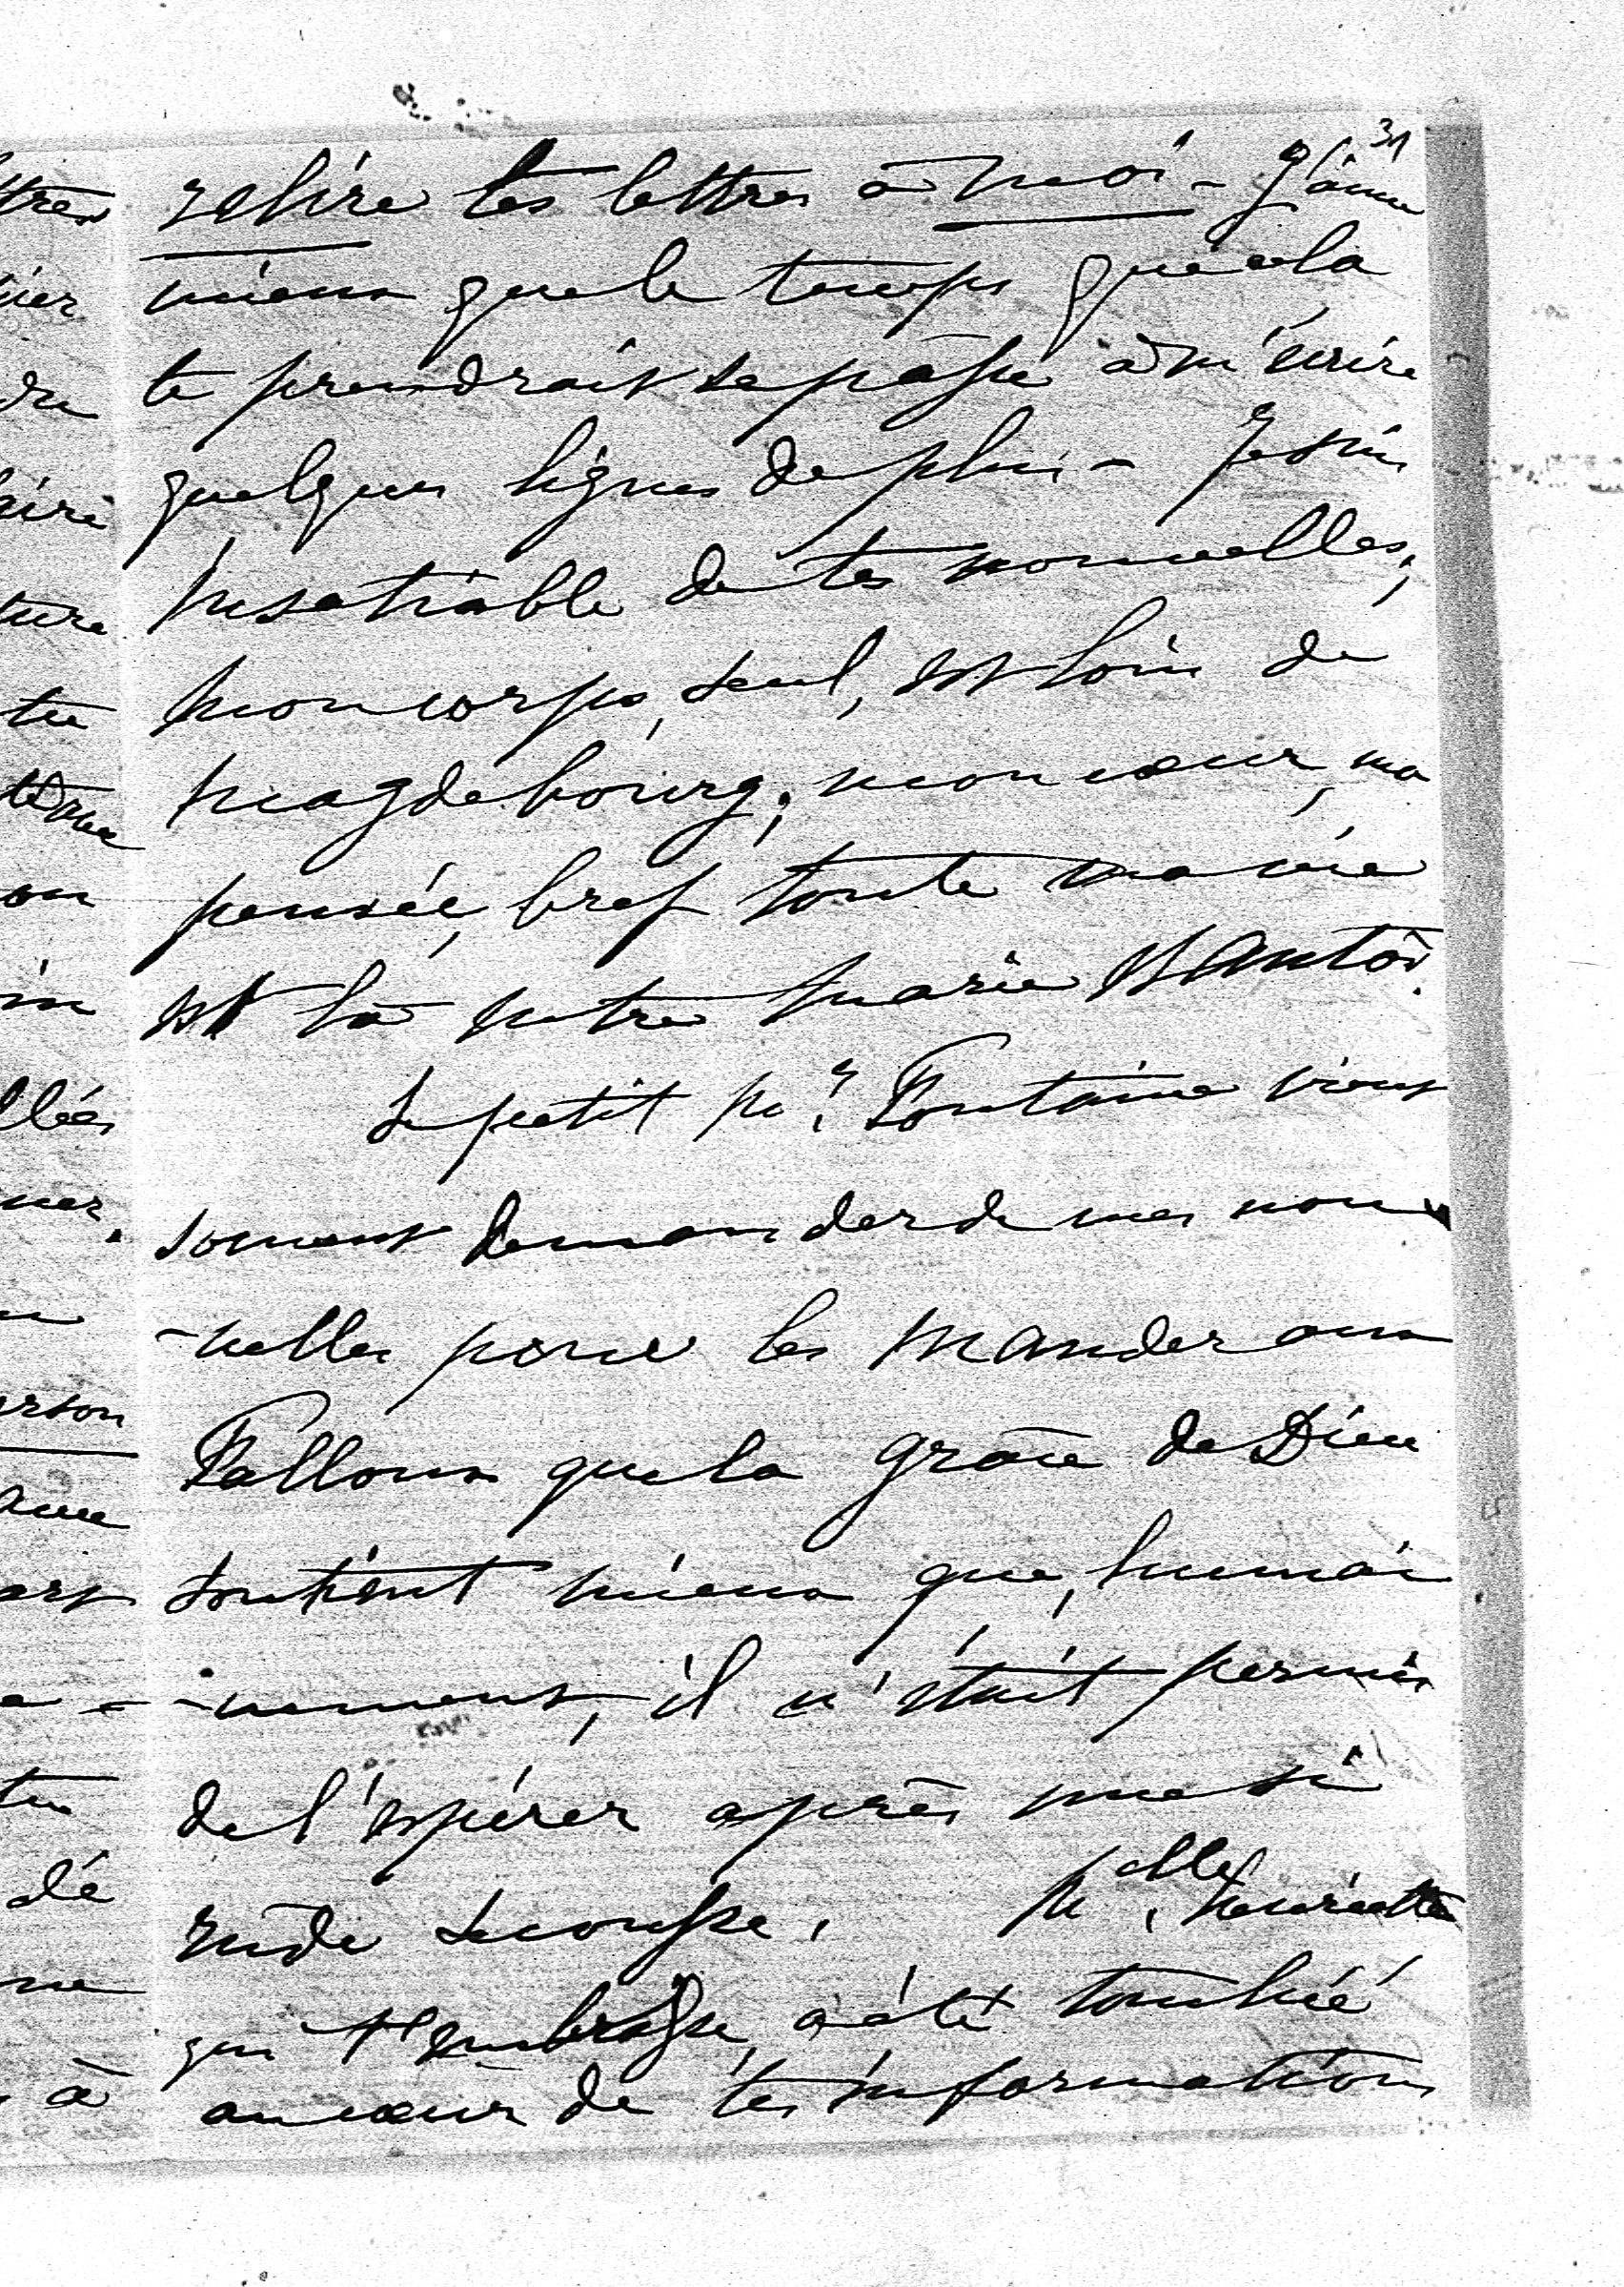 31
relire tes lettres à moi - J'aime
mieux que le temps que cela
te prendrait se passe à m'écrire
quelques lignes de plus - Je suis
insatiable de tes nouvelles;
mon corps, seul, est loin de
Magdebourg; mon cœur, ma
pensée, bref toute ma vie
est là entre Marie et
Le petit Mr. Fontaine vient
souvent demander de mes nou
-velles pour les mander aux
Falloux que la grâce de Dieu
soutient mieux que, humai
-nement, il n'était permis
de l'espérer après une si
rude secousse. Melle. Henriette
qui t'embrasse, a été touchée
au cœur de tes informations